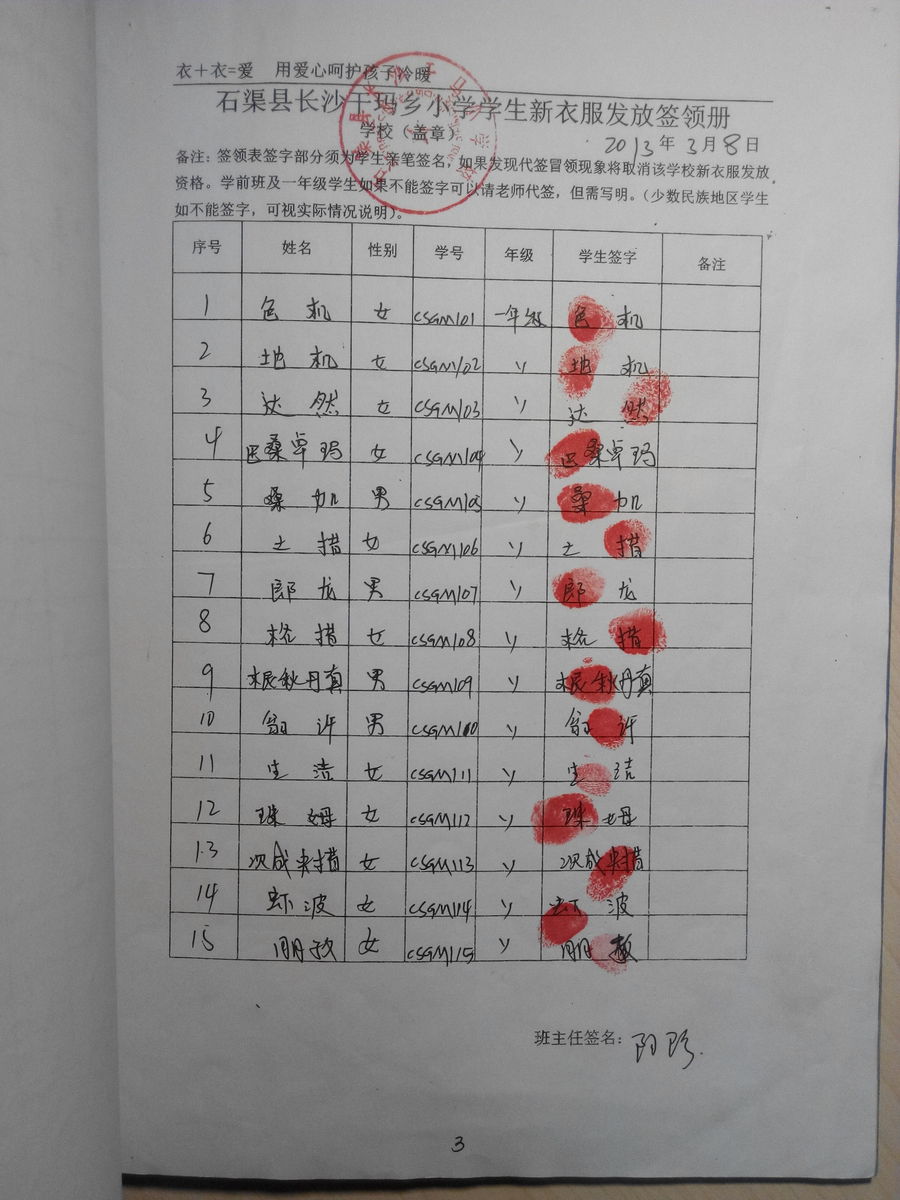 衣+衣=爱 用爱心呵护孩子冷暖
石渠县长沙干玛乡小学学生新衣服发放签领册
学校（盖章）
2013年3月8日
备注：签领表签字部分须为学生亲笔签名，如果发现代签冒领现象将取消该学校新衣服发放
资格。学前班及一年级学生如果不能签字可以请老师代签，但需写明。（少数民族地区学生
如不能签字，可视实际情况说明）。
序号 姓名 性别 学号 年级 学生签字 备注
1 色机 女 CSGM101 一年级 色机
2 地机 女 CSGM102 〃 地机
3 达然 女 CSGM103 〃 达然
4 巴桑卓玛 女 CSGM104 〃 巴桑卓玛
5 桑加 男 CSGM105 〃 桑加
6 土措 女 CSGM106 〃 土措
7 郎龙 男 CSGM107 〃 郎龙
8 格措 女 CSGM108 〃 格措
9 根秋丹真 男 CSGM109 〃 根秋丹真
10 男 CSGM110 〃
11 生洁 女 CSGM111 〃 生洁
12 珠姆 女 CSGM112 〃 珠姆
13 次成央措 女 CSGM113 〃 次成央措
14 虾波 女 CSGM114 〃 虾波
15 女 CSGM115 〃
班主任签名：
3